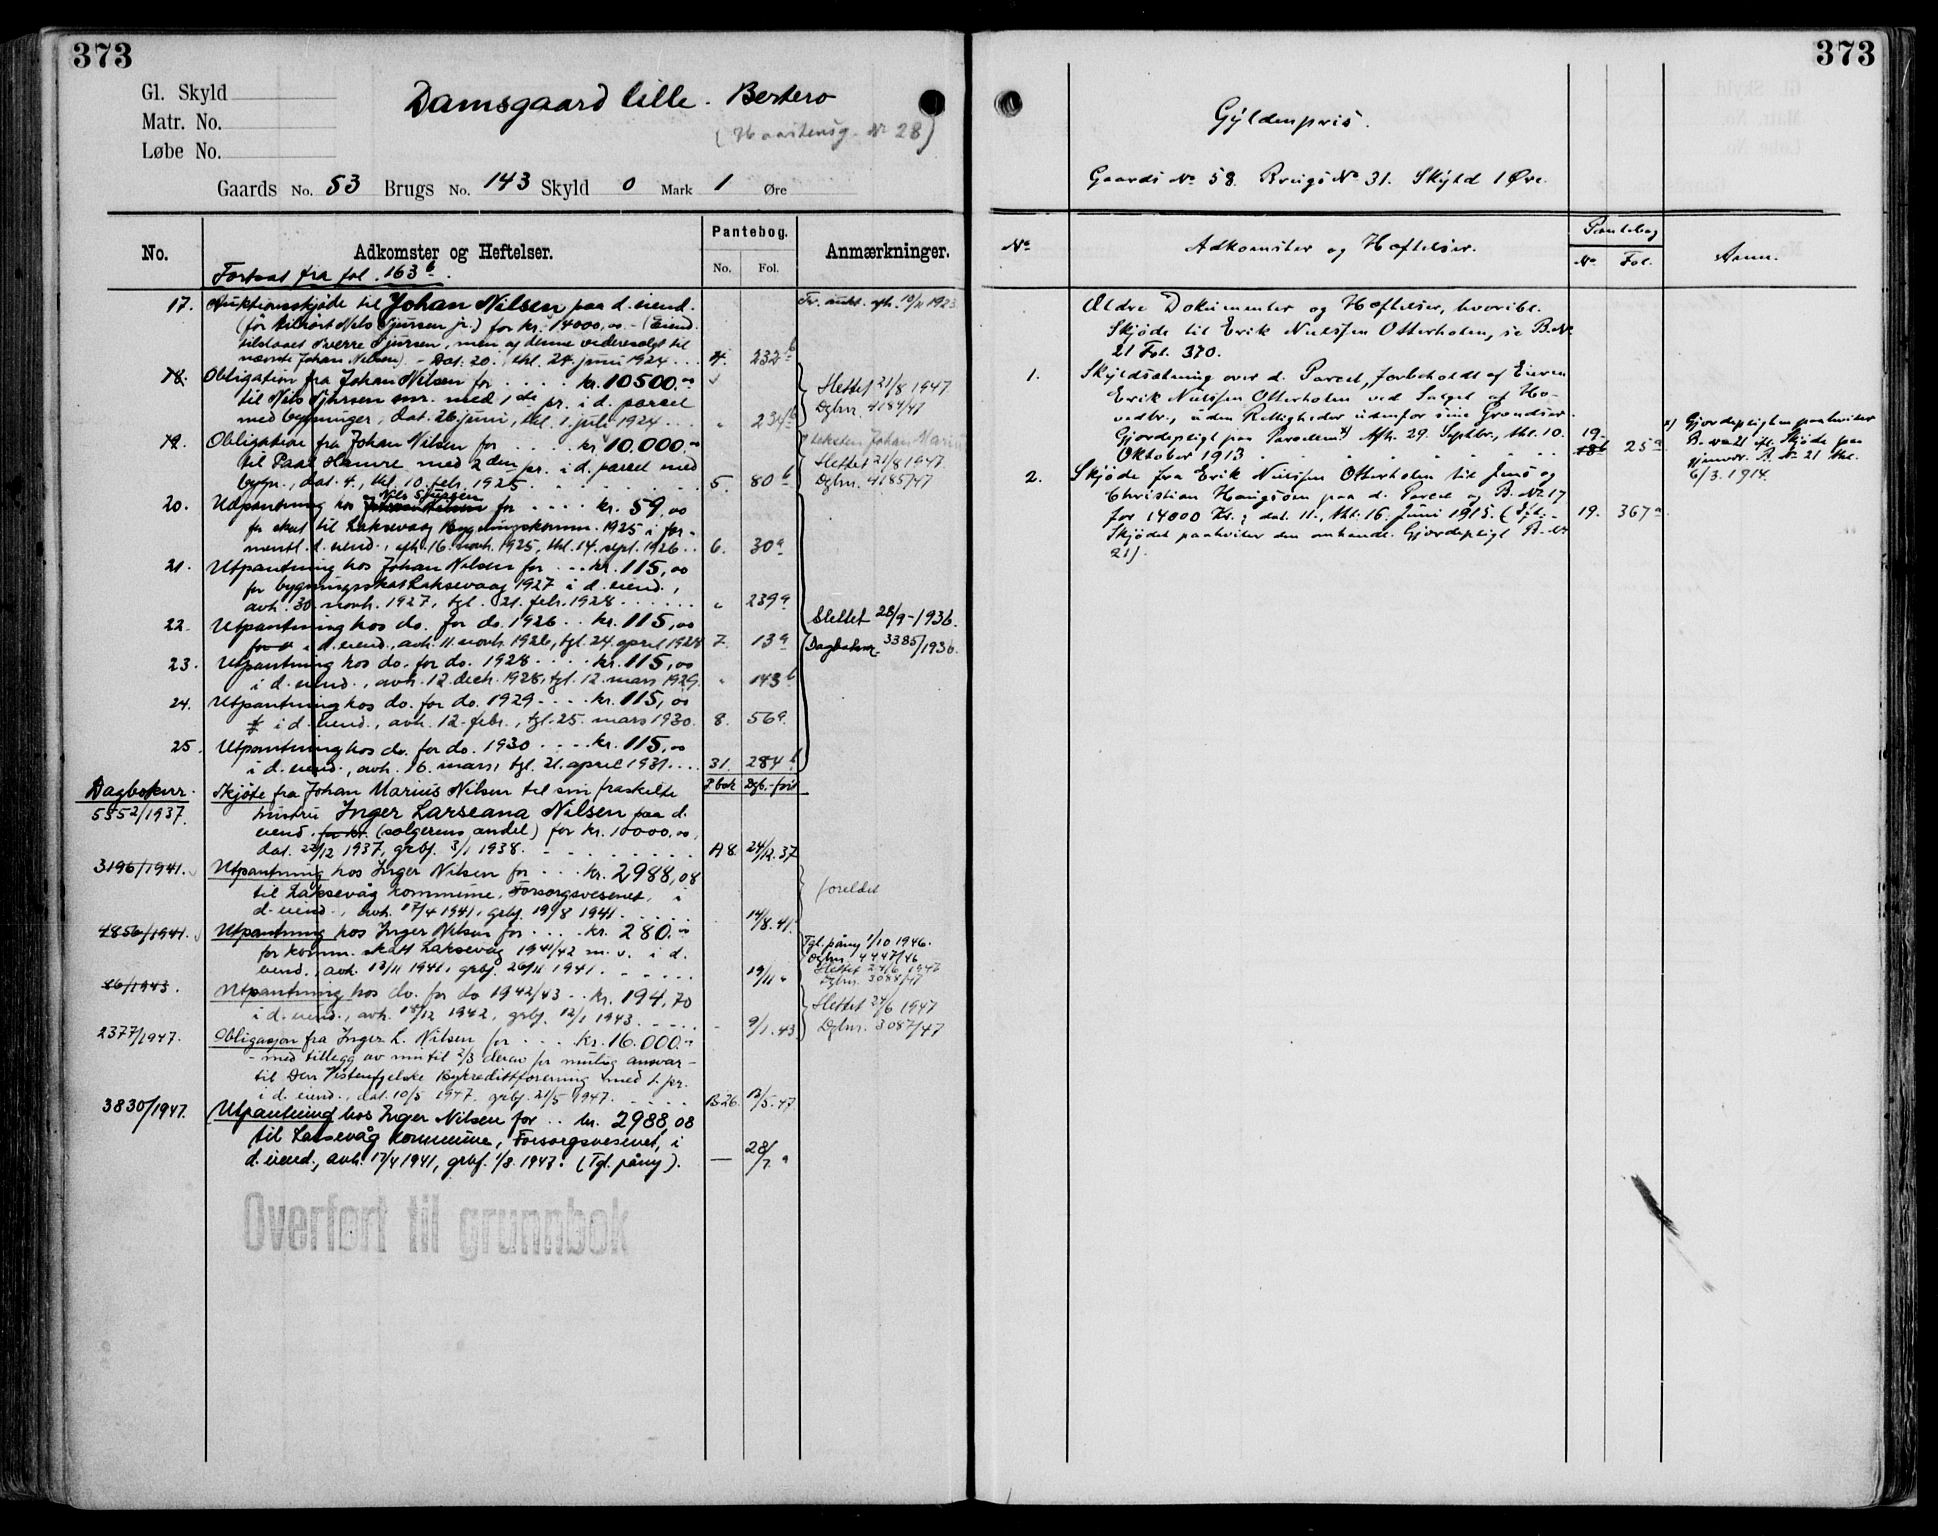 373
Gl. Skyld
Matr. No.
Løbe No.
Damsgaard lille. Bertero
No 28)
Gaards No. 53 Brugs No. 143 Skyld 0 Mark 1 Øre
No. Adkomster og Heftelser. Pantebog. No. Fol. Anmærkninger.
Fortsat fra fol. 163 b.
17. Auktionsskjøde til Johan Nilsen paa d. eiend.
(før tilhørt Nils Sjursen jr.) for kr. 14000,00 - (Eiend.
tilslaaet Sverre Sjursen, men af denne videresolgt til
nævnte Johan Nilsen) - Dat. 20., thl. 24. juni 1924 . . . 4. 232 b
18. Obligation fra Johan Nilsen for . . . . kr. 10500.-
til Nils Sjursen snr. med 1ste pr. i d. parsel
med bygninger, dat. 26. juni, thl. 1. juli 1924 . . . " 234 b
Slettet 21/8 1947
Dgbnr. 4184/47
19. Obligation fra Johan Nilsen for . . . . kr. 10.000.-
til Paal Hamre med 2den pr. i d. parsel med
bygn., dat. 4., thl. 10. febr. 1925 . . . . 5. 80 b
Slettet 21/8 1947
Dgbnr. 4185/47
20. Udpantning hos Nils Sjursen for . . . . kr. 59,00
for skat til Laksevaag Bygningskomm. 1925 i for-
mentl. d. eiend., afh. 16. novb. 1925, thl. 14. sept. 1926 . . 6. 30 a
21. Utpantning hos Johan Nilsen for . . . kr. 115,00
for bygningsskat Laksevaag 1927 i d. eiend.,
avh. 30. novb. 1927, tgl. 21. febr. 1928 . . . . . . " 239 a
22. Utpantning hos do. for do. 1926 . . kr. 115,00
i d. eiend., avh. 11. novb. 1926, tgl. 24. april 1928 7. 13 a
Slettet 28/9-1936.
Dagboknr. 3385/1936.
23. Utpantning hos do. for do. 1928 . . . . kr. 115,00
i d. eiend., avh. 12. decb. 1928, tgl. 12. mars 1929. " 143 b
24. Utpantning hos do. for do. 1929 . . . . kr. 115,00
i d. eiend., avh. 12. febr., tgl. 25. mars 1930. 8. 56 a.
25. Utpantning hos do. for do. 1930 . . . . kr. 115,00
i d. eiend., avh. 16. mars, tgl. 21. april 1931 . . . . 31. 284 b
Dagboknr. P.bok Dgb.-ført
5552/1937. Skjøte fra Johan Marius Nilsen til sin fraskilte
hustru Inger Larseana Nilsen paa d.
eiend. for kr. (selgerens andel) for kr. 10000,00,
dat. 22/12 1937, grbf. 3/1 1938. A 8. 24/12.37
3196/1941. Utpantning hos Inger Nilsen for . . . kr. 2988,08
til Laksevåg kommune, Forsorgsvesenet, i
d. eiend., avh. 17/4 1941, grbf. 19/8 1941. 14/8.41.
foreldet
4856/1941. Utpantning hos Inger Nilsen for . . . . kr. 280.-
for komm. skatt Laksevåg 1941/42 m. v. i d.
eiend., avh. 13/11 1941, grbf. 26/11 1941. 19/11 "
Tgl. påny 1/10 1946.
Dgbnr. 4447/46
Slettet 24/6 1947
Dgbnr. 3088/47
86/1943. Utpantning hos do. for do 1942/43 . . kr. 194,70
i d. eiend., avh. 18/12 1942, grbf. 12/1 1943. 9/1.43
Slettet 24/6 1947
Dgbnr. 3087/47
2377/1947. Obligasjon fra Inger L. Nilsen for . . . kr. 16.000.-
- med tillegg av inntil 2/3 derav for mulig ansvar -
til Den Vestenfjelske Bykredittforening med 1. pr.
i d. eiend., dat. 10/5 1947, grbf. 21/5 1947. B 26. 12/5.47
3830/1947. Utpantning hos Inger Nilsen for . . kr. 2988,08
til Laksevåg kommune, Forsorgsvesenet, i
d. eiend., avh. 17/4 1941, grbf. 1/8. 1947. (Tgl. påny). — 28/7 "
Overført til grunnbok
373
Gyldenpris.
Gaards No 58. Brugs No 31. Skyld 1 Øre.
No Adkomster og Heftelser. Pantebog No Fol. Anm.
Ældre Dokumenter og Heftelser, hvoribl.
Skjøde til Erik Nielsen Otterholen, se B.No
21 Fol. 370.
1. Skyldsætning over d. Parcel, forbeholdt af Eieren
Erik Nielsen Otterholen ved Salget af Ho-
vedbr., uden Rettigheder udenfor sine Grændser.
Gjerdepligt paa Parcellen x) Afh. 29. Septbr., thl. 10.
Oktober 1913 19. 25 a
x) Gjerdepligten paahviler
B. No 21 ifl. Skjøde paa
B. No 21 thl.
6/3. 1914.
2. Skjøde fra Erik Nielsen Otterholen til Jens og
Christian Haugsøen paa d. Parcel og B. No 17
for 14000 Kr.; dat. 11., thl. 16. Juni 1915. (Ifl. 19. 367 a
Skjødet paahviler den omhandl. Gjerdepligt B. No
21).